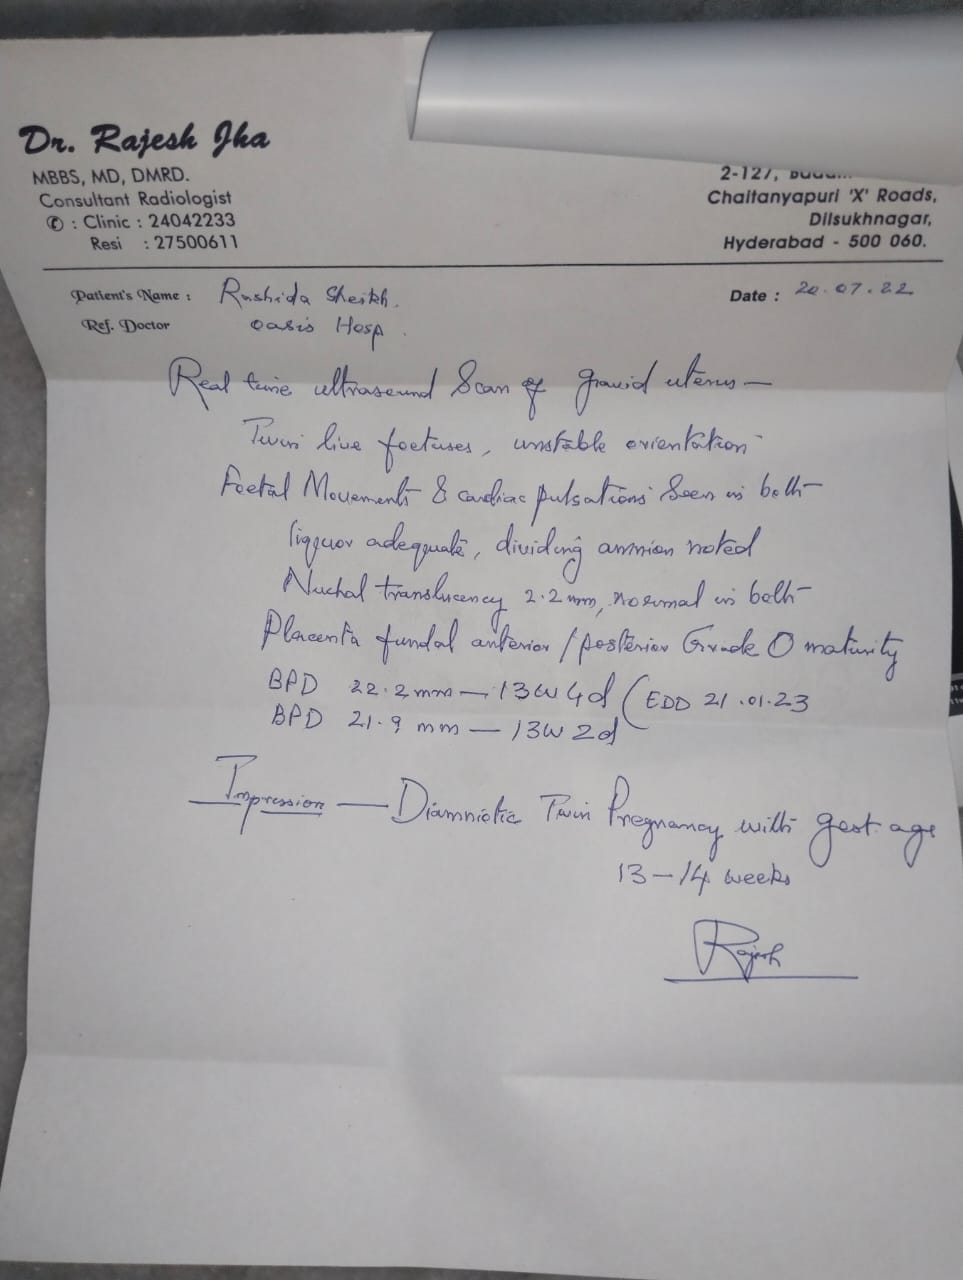 Dr. Rajesh Jha
MBBS, MD, DMRD.
Consultant Radiologist
✆ : Clinic : 24042233
Resi : 27500611
2-127,
Chaitanyapuri 'X' Roads,
Dilsukhnagar,
Hyderabad - 500 060.
Patient's Name : Rashida Sheikh.
Date : 20.07.22
Ref. Doctor Oasis Hosp.
Real time ultrasound Scan of gravid uterus —
Twin live foetuses, unstable orientation
Foetal Movements & cardiac pulsations seen in both
liqquor adequate, dividing amnion noted
Nuchal translucency 2.2 mm, normal in both
Placenta fundal anterior / posterior Grade 0 maturity
BPD 22.2 mm — 13W 4d ( EDD 21.01.23
BPD 21.9 mm — 13W 2d
Impression — Diamniotic Twin Pregnancy with gest. age
13 – 14 weeks
Rajesh